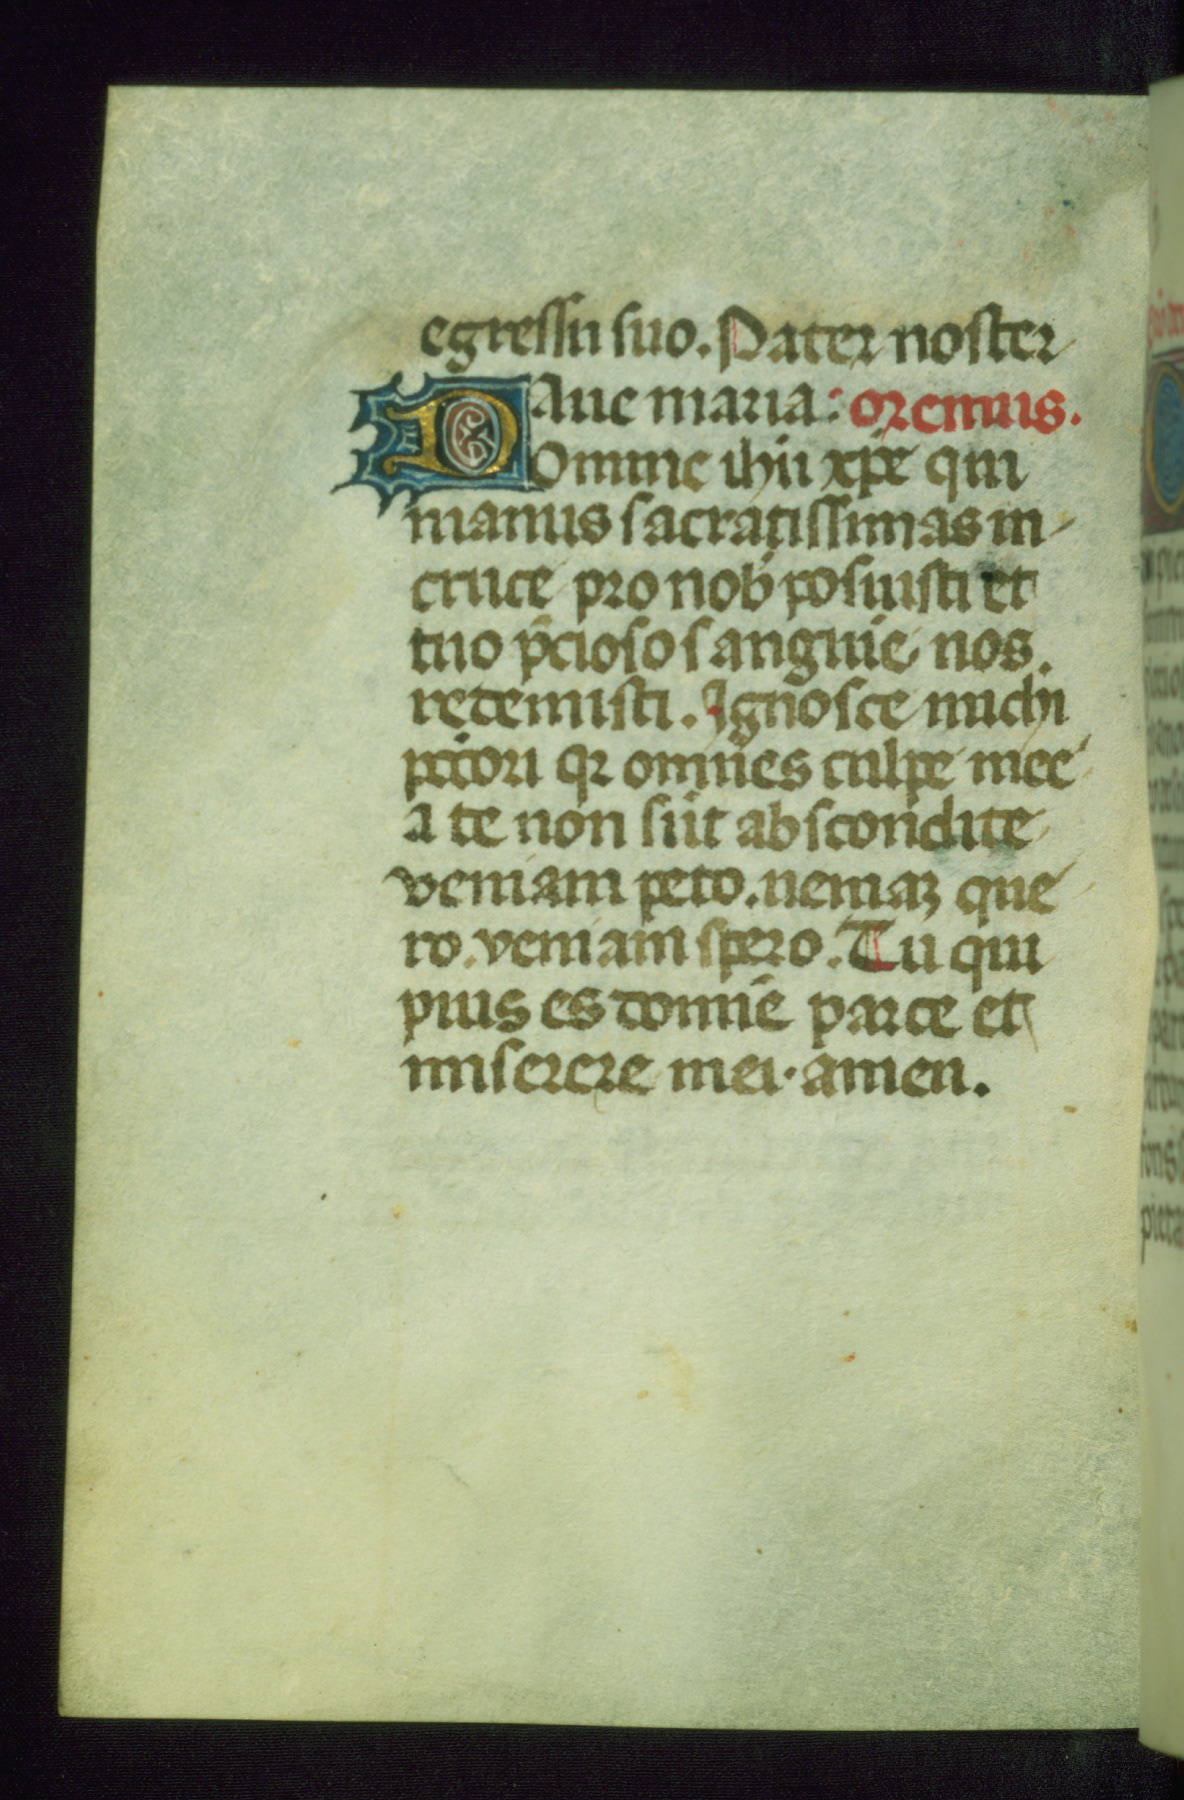 egressu suo. Pater noster
Aue maria: oremus.
Domine ihu xpe qui
manus sacratissimas in
cruce pro nob posuisti et
tuo pcioso sanguie nos
redemisti. Ignosce michi
pctori qr omnes culpe mee
a te non sut abscondite
veniam peto. veniaz que
ro. veniam spero. Tu qui
pius es domie parce et
miserere mei. amen.